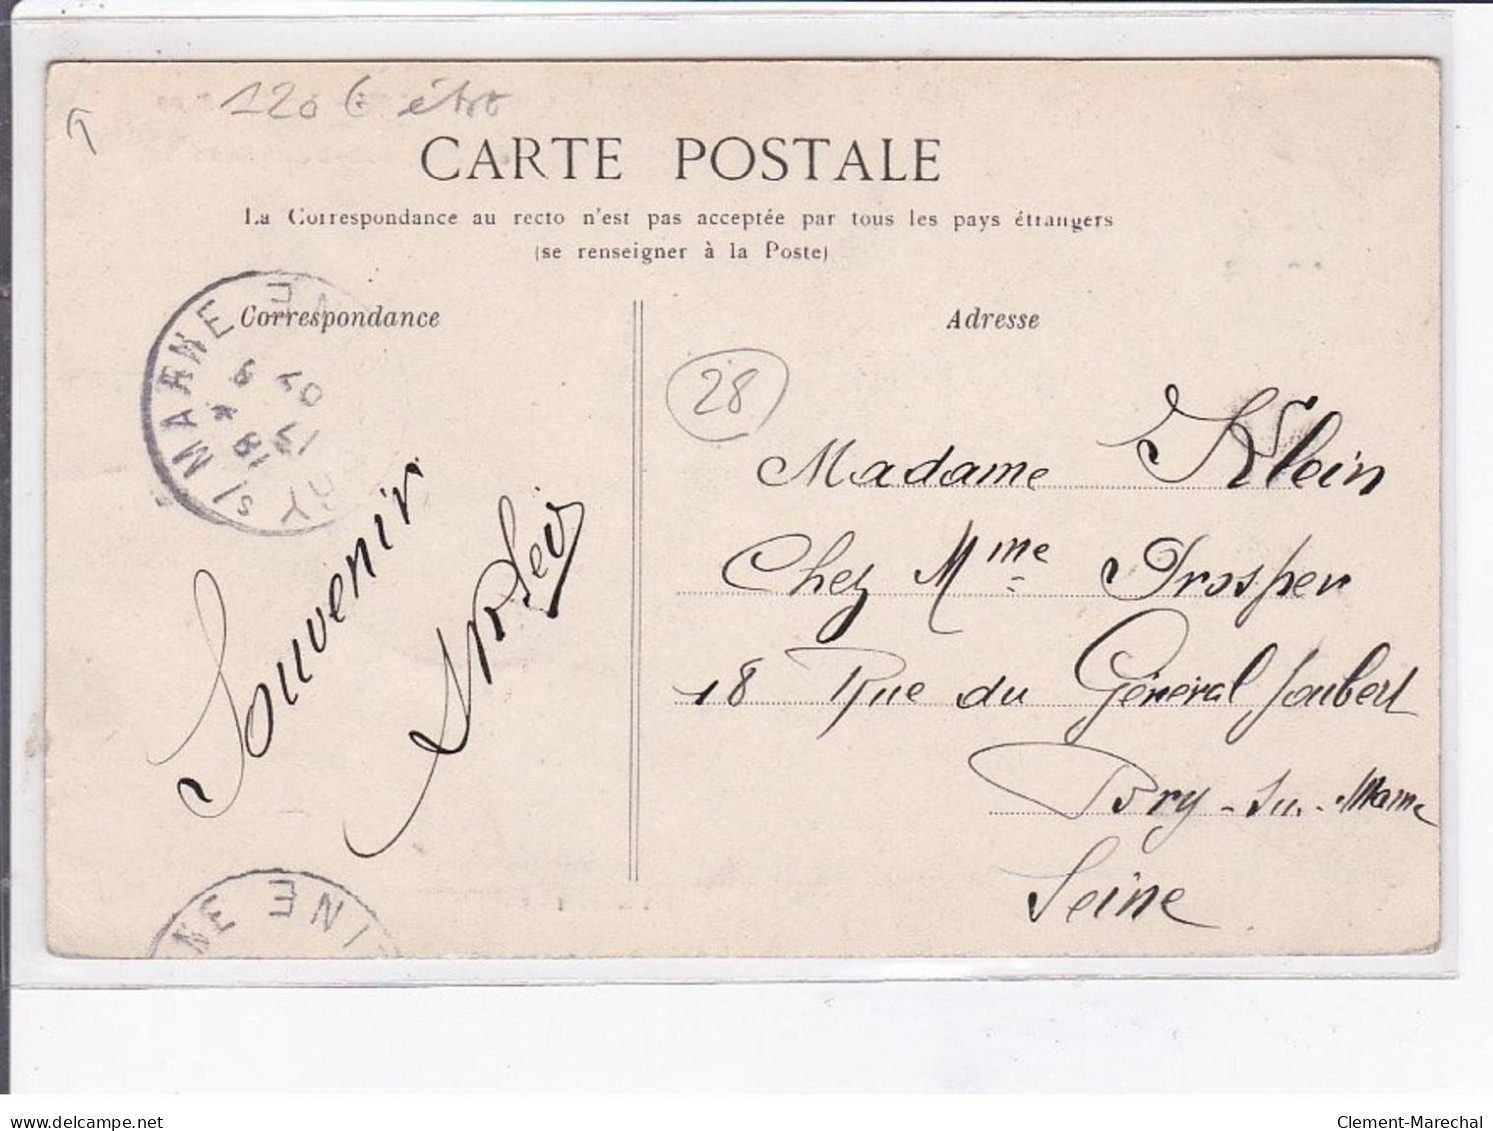 120 €
CARTE POSTALE
La Correspondance au recto n'est pas acceptée par tous les pays étrangers
(se renseigner à la Poste)
Correspondance
Adresse
MARNE
28
Madame Klein
Chez Mme Prosper
18 Rue du Général Joubert
Bry-sur-Marne
Seine
Souvenir
delcampe.net
Clement-Marechal